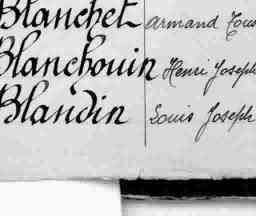 Blanchet Armand
Blanchouin Henri Joseph
Blandin Louis Joseph